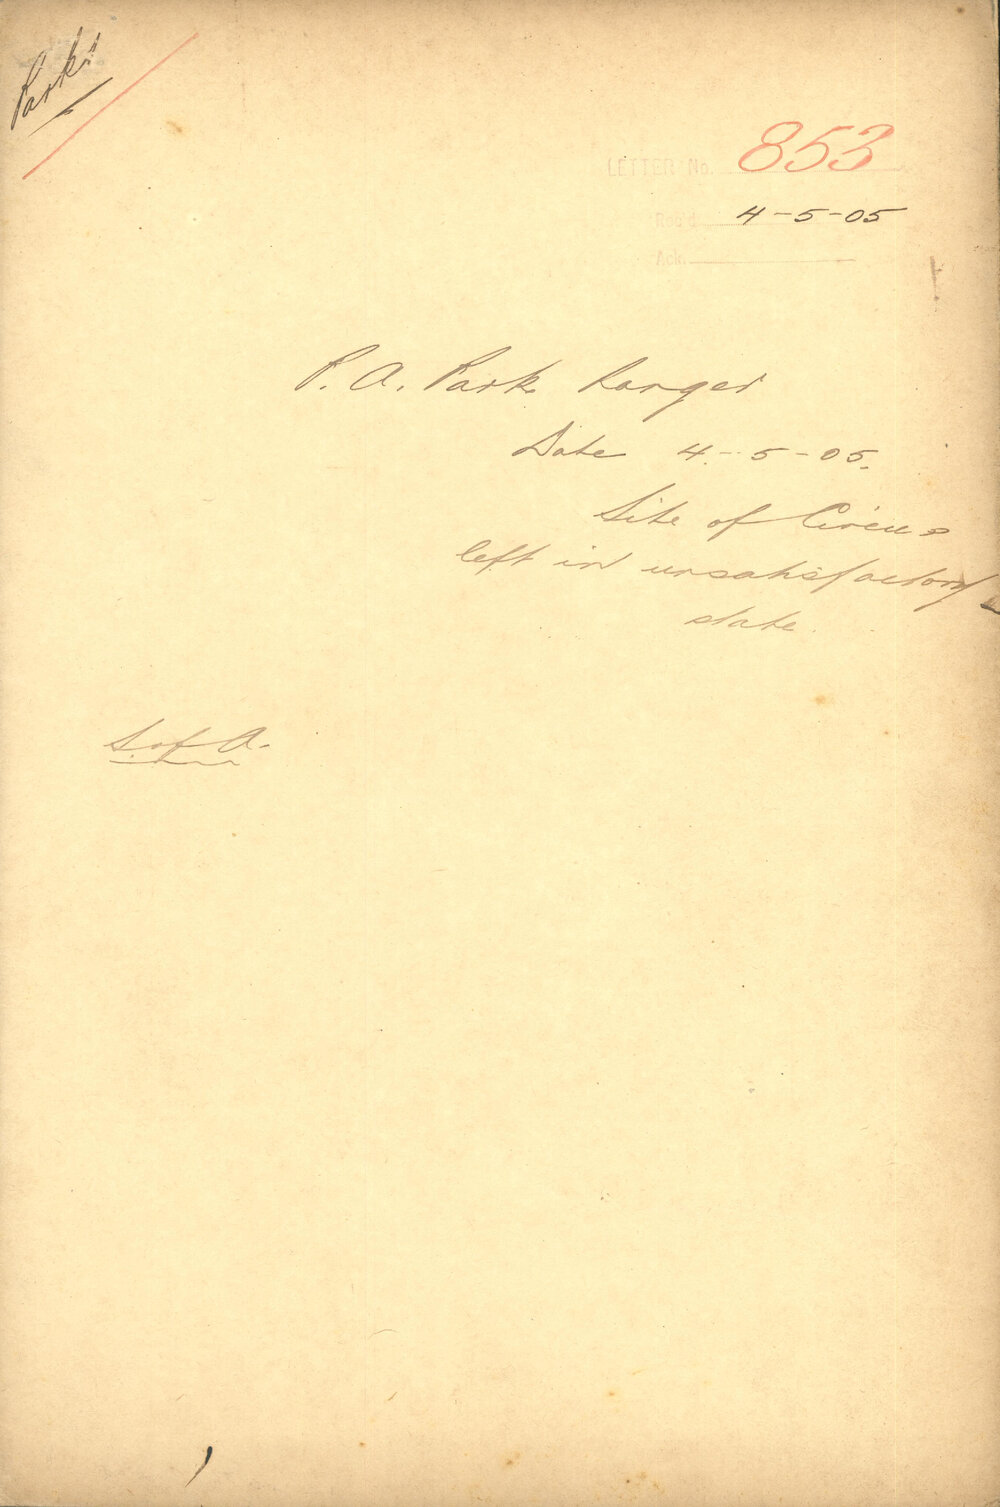 Parks
LETTER No. 853
Rec'd 4-5-05
Ack.
P. A. Park Ranger
Date 4-5-05.
Site of Circus
left in unsatisfactory
state.
S. of A.